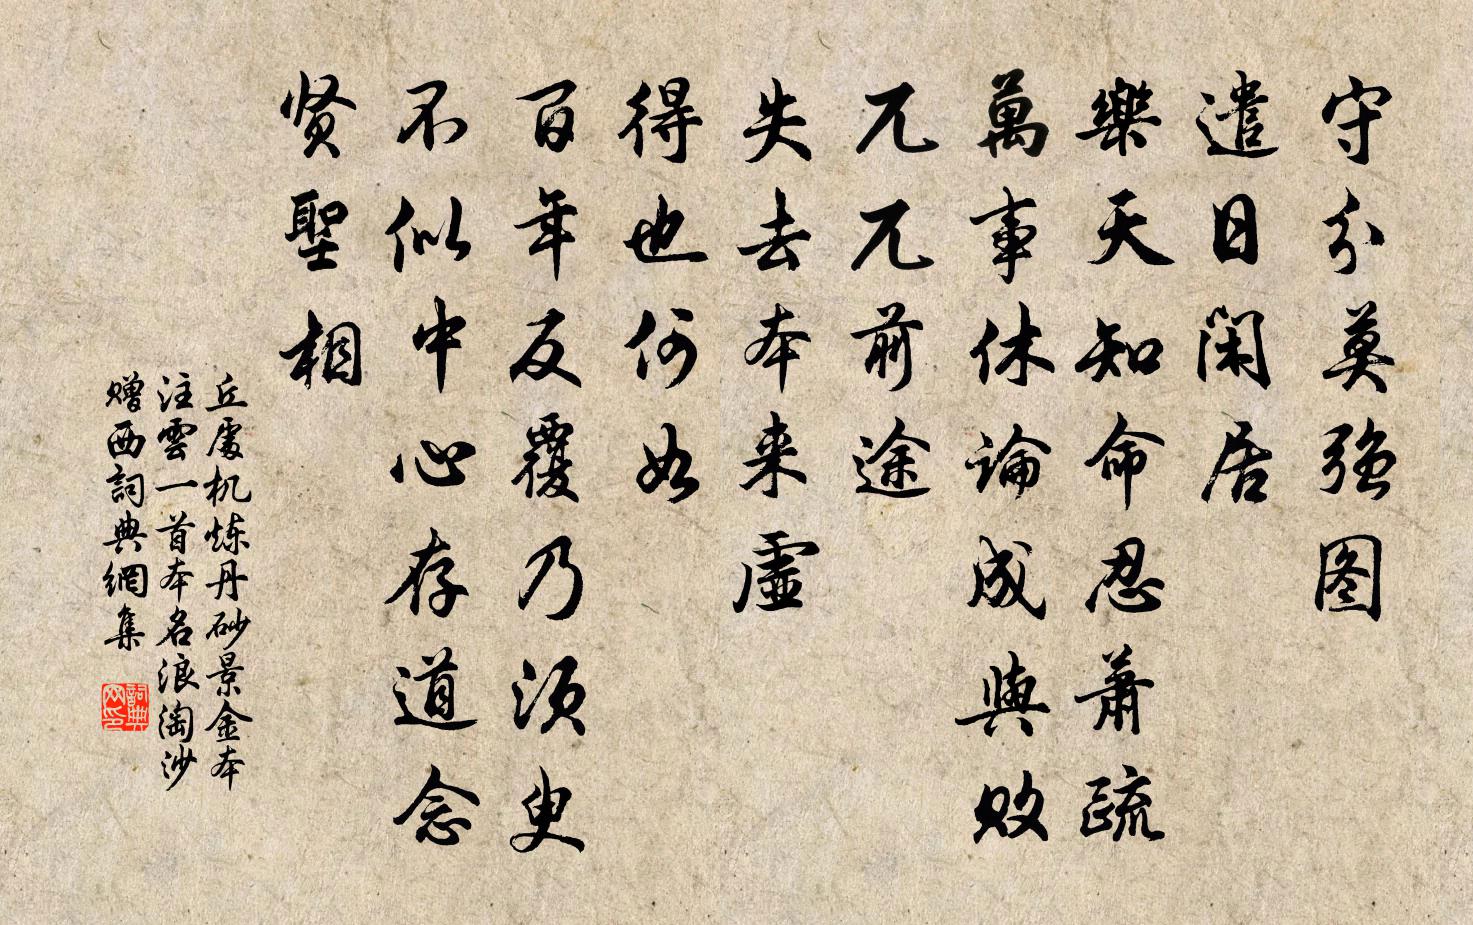 守分莫強图
遣日闲居
樂天知命忍萧疏
萬事休論成與败
兀兀前途
失去本来虚
得也何如
百年反覆乃须臾
不似中心存道念
贤聖相
丘處机炼丹砂景金本
注雲一首本名浪淘沙
赠西詞典網集
詞典
网印